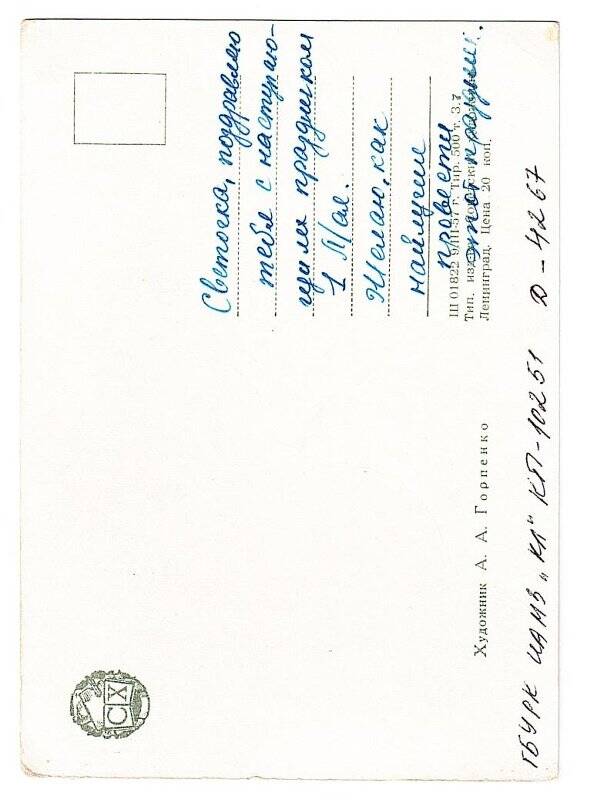 Светочка, поздравляю
тебя с наступаю-
щим праздником
1 Мая.
Желаю, как
найлучше
провести
этот праздник.
Ш 01822 9/III-57 г. Тир. 500 т. З. 7
Тип. изд.
Ленинград. Цена 20 коп.
Художник А. А. Горпенко
СХ
ГБУРК ЦАМЗ „КЛ" КП-10251 Д-4267